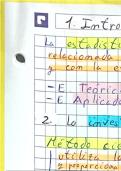 1. Intro
La estadíst
relacionada
y con la e
-E Teóric
-E Aplicad
2. La inves
Método cie
utiliza l
y proporcional